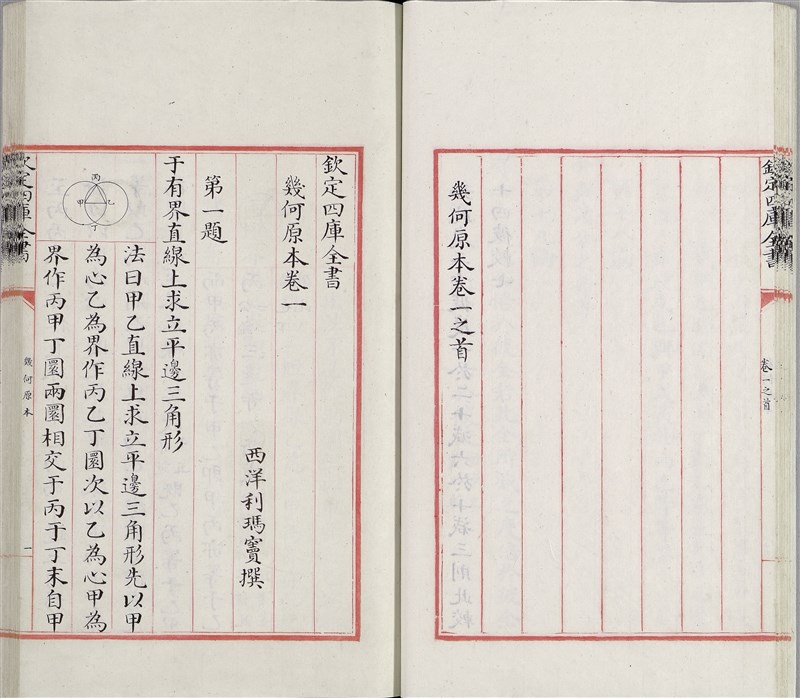 欽定四庫全書
卷一之首
幾何原本卷一之首
欽定四庫全書
幾何原本卷一
西洋利瑪竇撰
第一題
于有界直線上求立平邊三角形
丙
甲
乙
丁
法曰甲乙直線上求立平邊三角形先以甲
為心乙為界作丙乙丁圜次以乙為心甲為
界作丙甲丁圜兩圜相交于丙于丁末自甲
欽定四庫全書
幾何原本
一